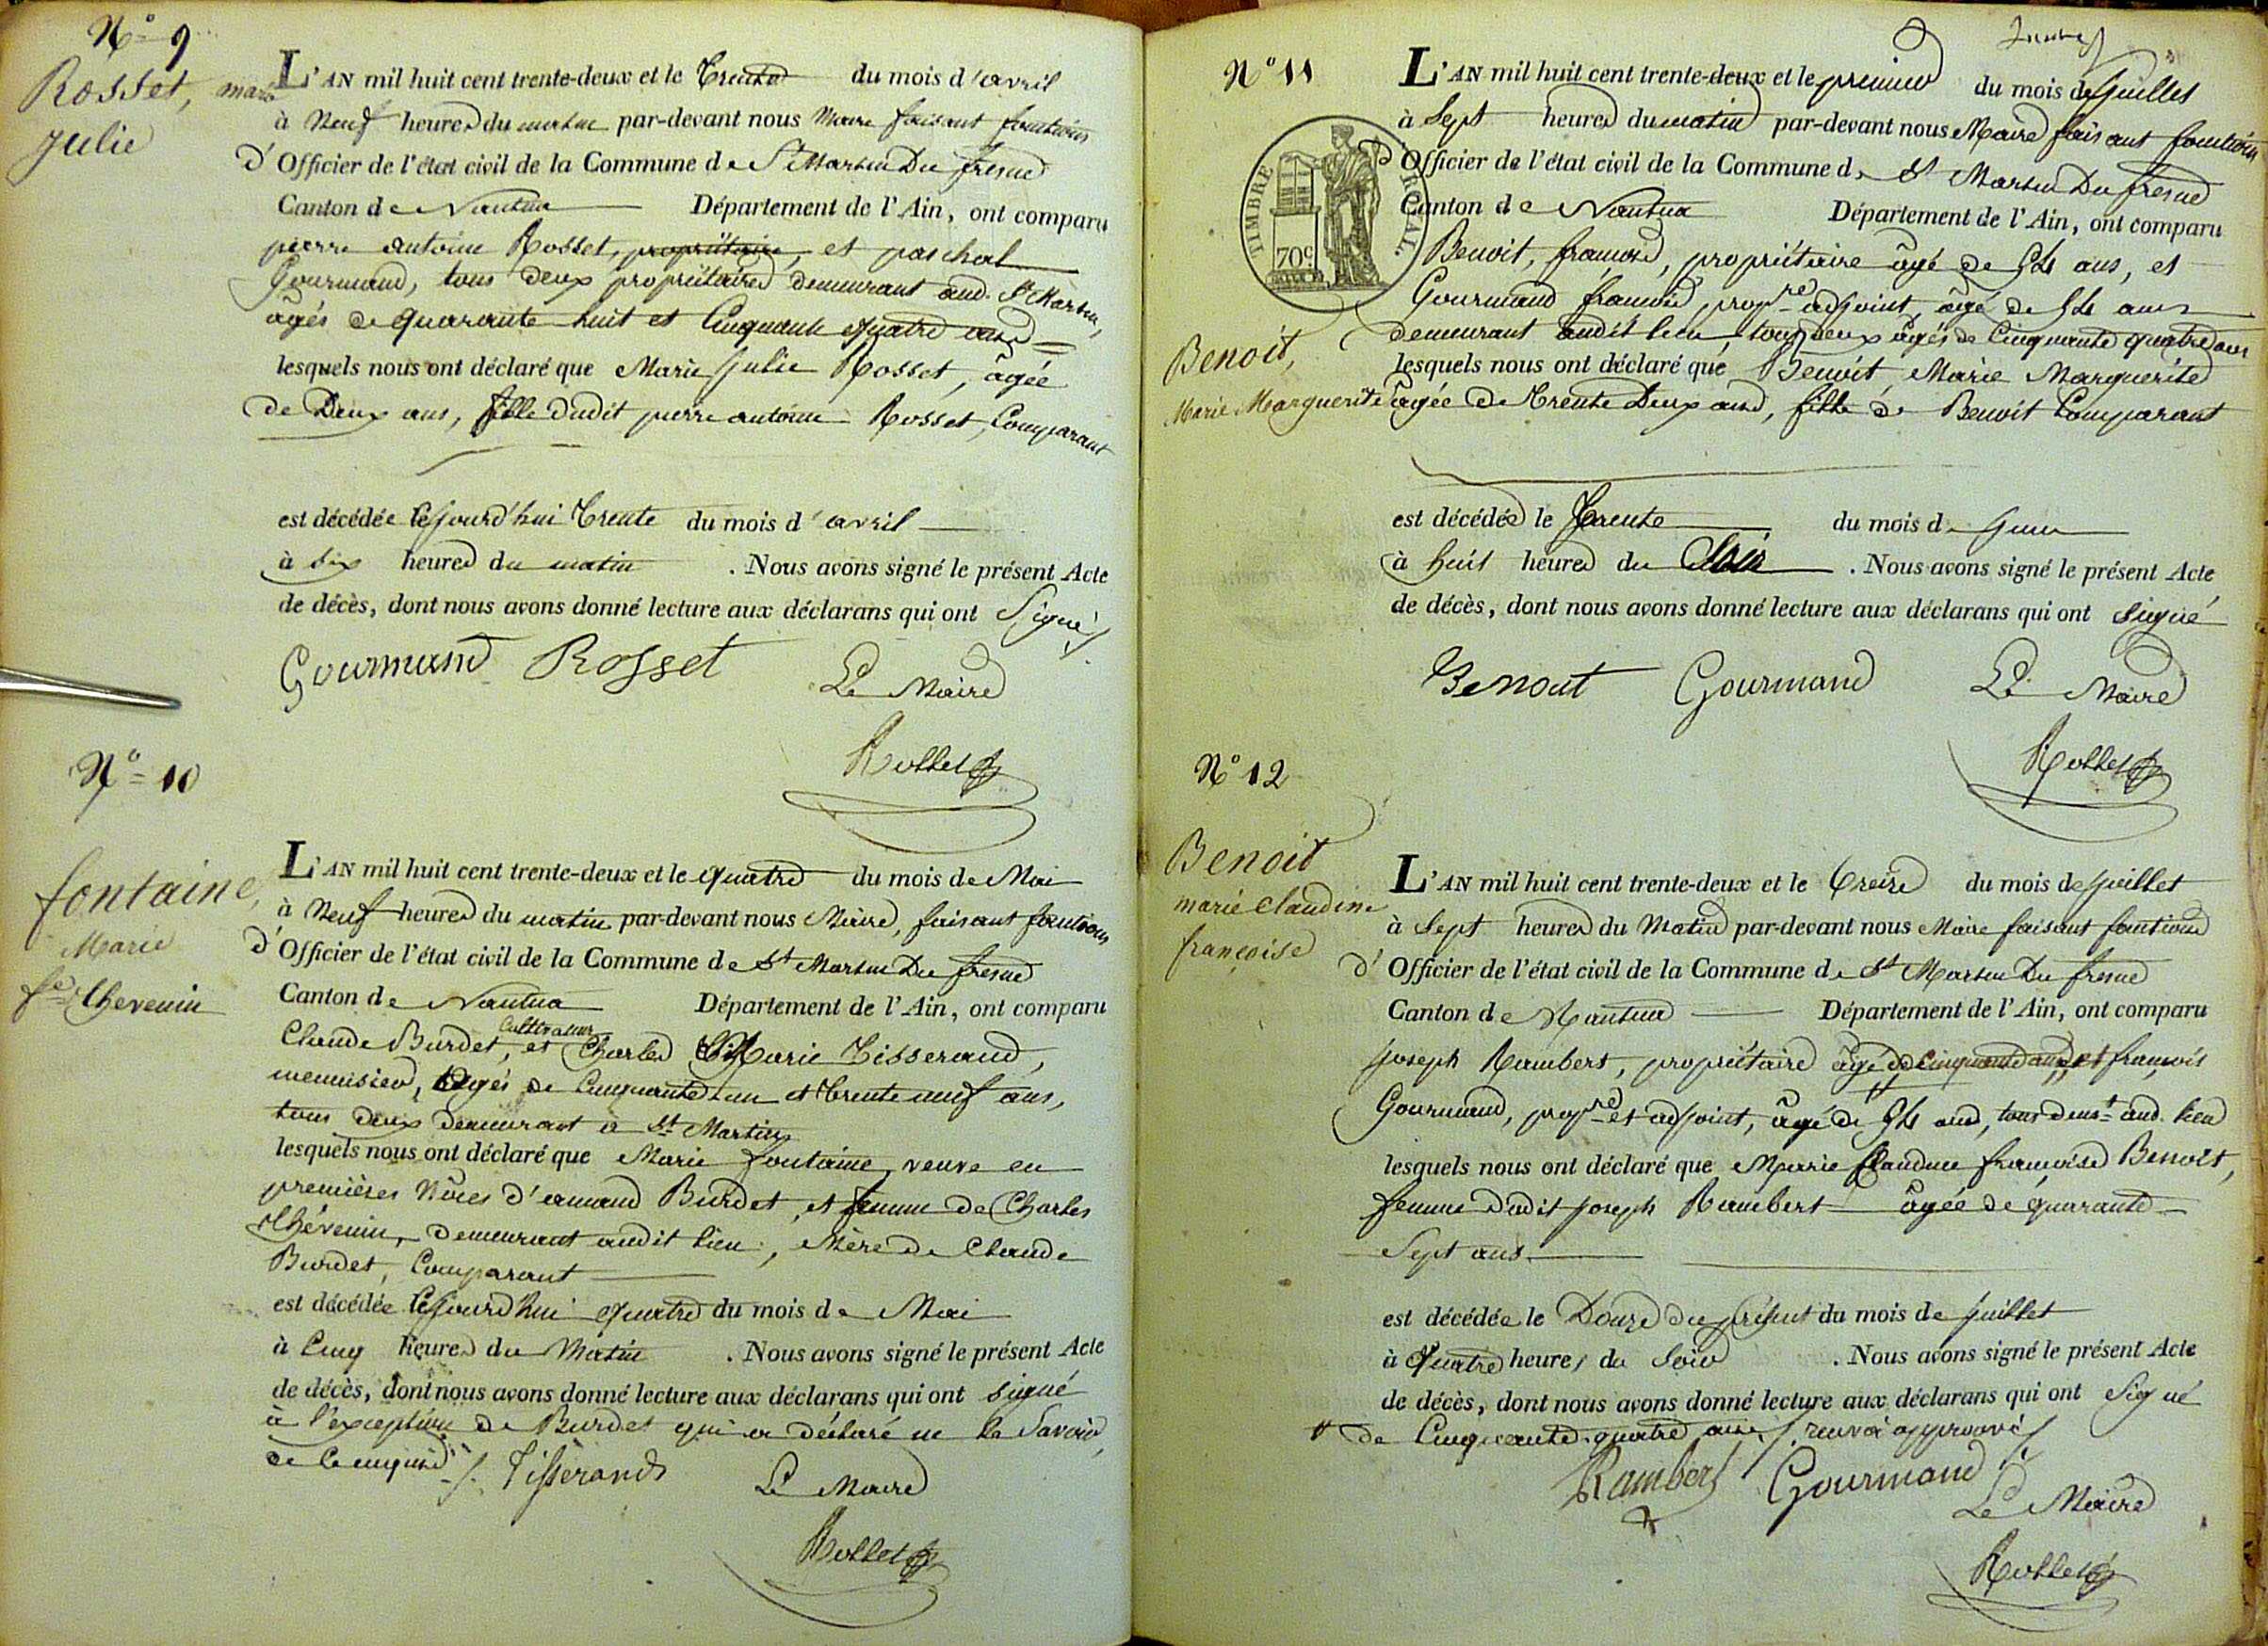 N° 9
Rosset, marie
julie
L'AN mil huit cent trente-deux et le trente du mois d'avril
à Neuf heures du matin par-devant nous Maire faisant fonctions
d'Officier de l'état civil de la Commune de St Martin Du fresne
Canton de Nantua Département de l'Ain, ont comparu
pierre antoine Rosset, propriétaire, et paschal
Gourmand, tous deux propriétaires demeurant aud. St Martin,
âgés de quarante huit et Cinquante quatre ans
lesquels nous ont déclaré que Marie Julie Rosset, âgée
de Deux ans, fille dudit pierre antoine Rosset, Comparant
est décédée cejourd'hui trente du mois d'avril
à six heures du matin. Nous avons signé le présent Acte
de décès, dont nous avons donné lecture aux déclarans qui ont Signé
Gourmand Rosset Le Maire
Rollet
N° 10
fontaine,
Marie
fe Chevenin
L'AN mil huit cent trente-deux et le quatre du mois de Mai
à Neuf heures du matin par-devant nous Maire, faisant fonctions
d'Officier de l'état civil de la Commune de St Martin Du fresne
Canton de Nantua Département de l'Ain, ont comparu
Cultivateur
Claude Burdet, et Charles Marie Tisserand,
menuisier, âgés de Cinquante un et trente neuf ans,
tous deux demeurant à St Martin
lesquels nous ont déclaré que Marie fontaine, veuve en
premières Nôces d'armand Burdet, et femme de Charles
Chévenin, demeurant audit lieu, Mère de Claude
Burdet, Comparant
est décédée cejourd'hui quatre du mois de Mai
à Cinq heures du Matin. Nous avons signé le présent Acte
de décès, dont nous avons donné lecture aux déclarans qui ont signé
à l'exception de Burdet qui a déclaré ne le Savoir,
de ce enquis Tisserand Le Maire
Rollet
N° 11
Benoit,
Marie Marguerite
TIMBRE ROYAL.
70c
L'AN mil huit cent trente-deux et le premier du mois de Juillet
à Sept heures du matin par-devant nous Maire faisant fonctions
d'Officier de l'état civil de la Commune de St Martin Du fresne
Canton de Nantua Département de l'Ain, ont comparu
Benoit, françois, propriétaire âgé de 54 ans, et
Gourmand françois, propre adjoint, âgé de 54 ans
demeurant audit lieu, tous deux âgés de Cinquante quatre ans
lesquels nous ont déclaré que Benoit Marie Marguerite
âgée de trente Deux ans, fille de Benoit Comparant
est décédée le trente du mois de Juin
à huit heures du Soir. Nous avons signé le présent Acte
de décès, dont nous avons donné lecture aux déclarans qui ont signé
Benoit Gourmand Le Maire
Rollet
N° 12
Benoit
marie claudine
françoise
L'AN mil huit cent trente-deux et le treize du mois de Juillet
à Sept heures du Matin par-devant nous Maire faisant fonctions
d'Officier de l'état civil de la Commune de St Martin Du fresne
Canton de Nantua Département de l'Ain, ont comparu
joseph Rambert, propriétaire âgé de Cinquante ans, et françois
Gourmand, propre et adjoint, âgé de 54 ans, tous demt aud. lieu
lesquels nous ont déclaré que Marie Claudine françoise Benoit,
femme dudit joseph Rambert âgée de quarante
Sept ans
est décédée le Douze du présent du mois de Juillet
à Quatre heures du Soir. Nous avons signé le présent Acte
de décès, dont nous avons donné lecture aux déclarans qui ont Signé
de Cinquante quatre ans, renvoi approuvé
Rambert Gourmand Le Maire
Rollet